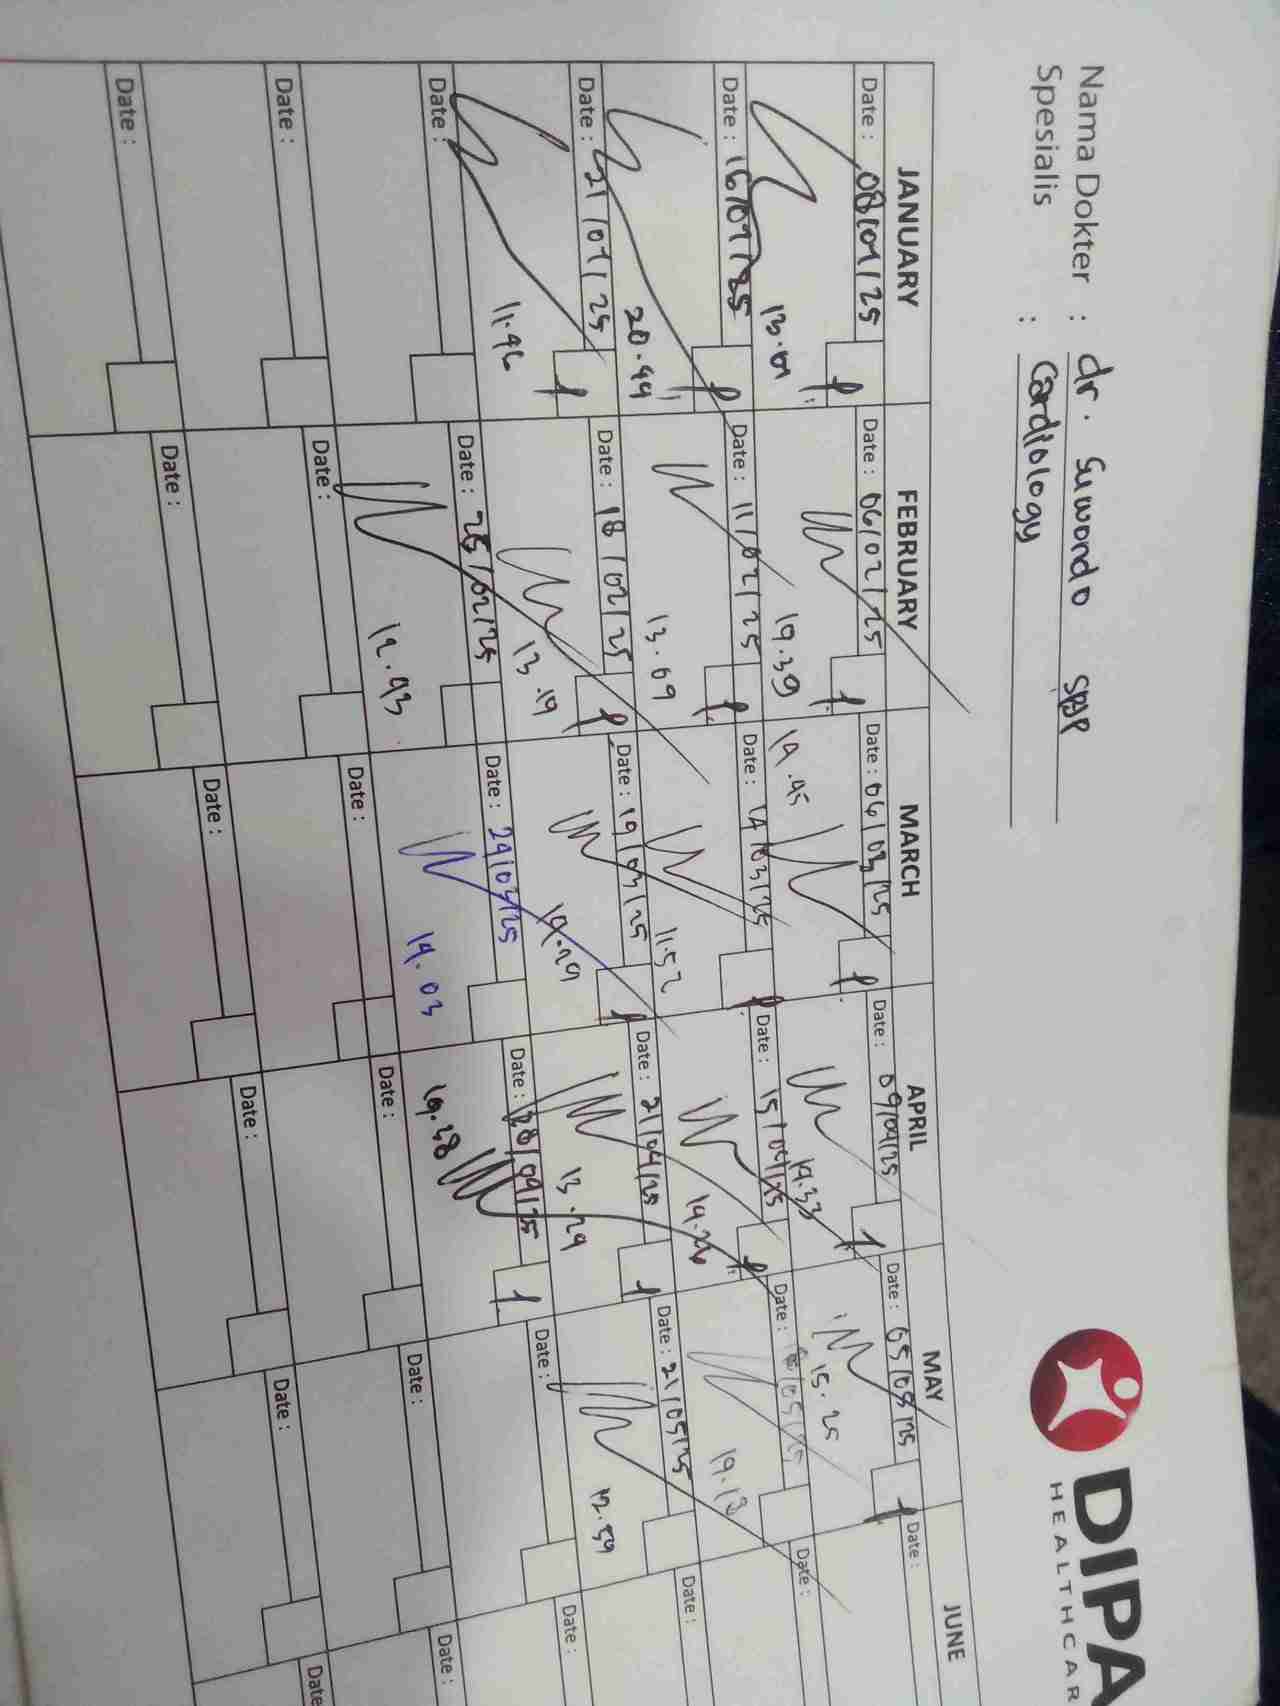 DIPA
HEALTHCAR
Nama Dokter : dr. Suwondo SpJP
Spesialis : Cardiology
JANUARY FEBRUARY MARCH APRIL MAY JUNE
Date : 08/01/25 Date : 06/02/25 Date : 06/03/25 Date : 09/04/25 Date : 05/05/25 Date :
13.01 19.39 14.45 14.33 15.25
Date : 16/01/25 Date : 11/02/25 Date : 14/03/25 Date : 15/04/25 Date : /05/25 Date :
20.44 13.09 11.52 14.26 19.13
Date : 21/01/25 Date : 18/02/25 Date : 19/03/25 Date : 21/04/25 Date : 21/05/25 Date :
11.46 13.19 14.29 13.29 12.59
Date : Date : 25/02/25 Date : 24/03/25 Date : 28/04/25 Date : Date :
12.43 14.03 19.38
Date : Date : Date : Date : Date : Date :
Date : Date : Date : Date : Date : Date